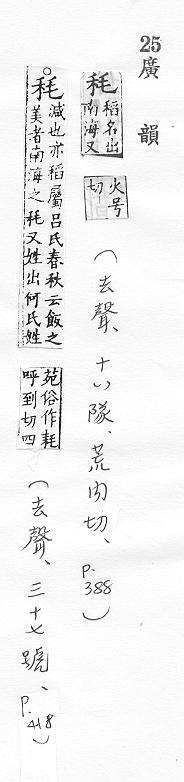 25 廣韻
秏 稻名出南海又火号切 (去聲、十八隊、荒内切、p.388)
○秏 減也亦稻屬呂氏春秋云飯之美者南海之秏又姓出何氏姓苑俗作耗呼到切四 (去聲、三十七號、p.418)